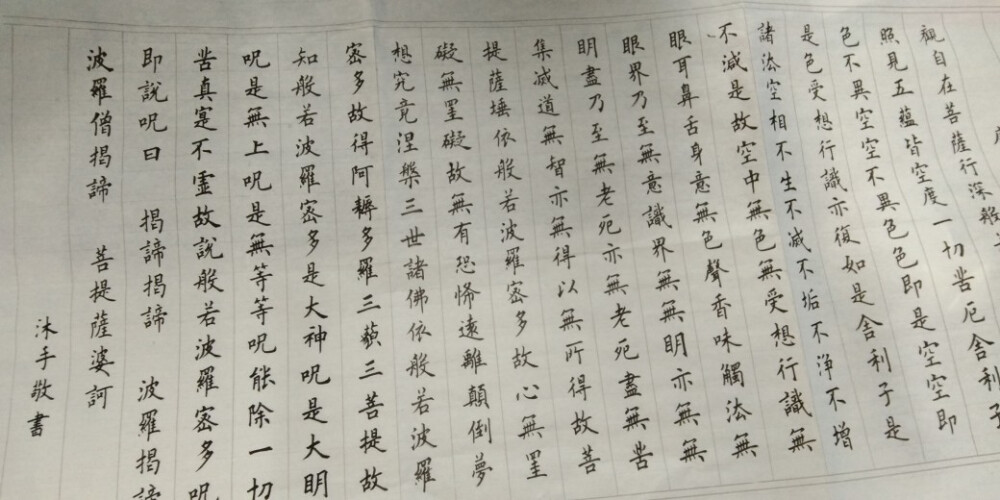 觀自在菩薩行深般
照見五蘊皆空度一切苦厄舍利子
色不異空空不異色色即是空空即
是色受想行識亦復如是舍利子是
諸法空相不生不滅不垢不浄不增
不減是故空中無色無受想行識無
眼耳鼻舌身意無色聲香味觸法無
眼界乃至無意識界無無明亦無無
明盡乃至無老死亦無老死盡無苦
集滅道無智亦無得以無所得故菩
提薩埵依般若波羅密多故心無罣
礙無罣礙故無有恐怖遠離顛倒夢
想究竟涅槃三世諸佛依般若波羅
密多故得阿耨多羅三藐三菩提故
知般若波羅密多是大神呪是大明
呪是無上呪是無等等呪能除一切
苦真寔不虛故說般若波羅密多呪
即說呪曰 揭諦揭諦 波羅揭諦
波羅僧揭諦 菩提薩婆訶
沐手敬書